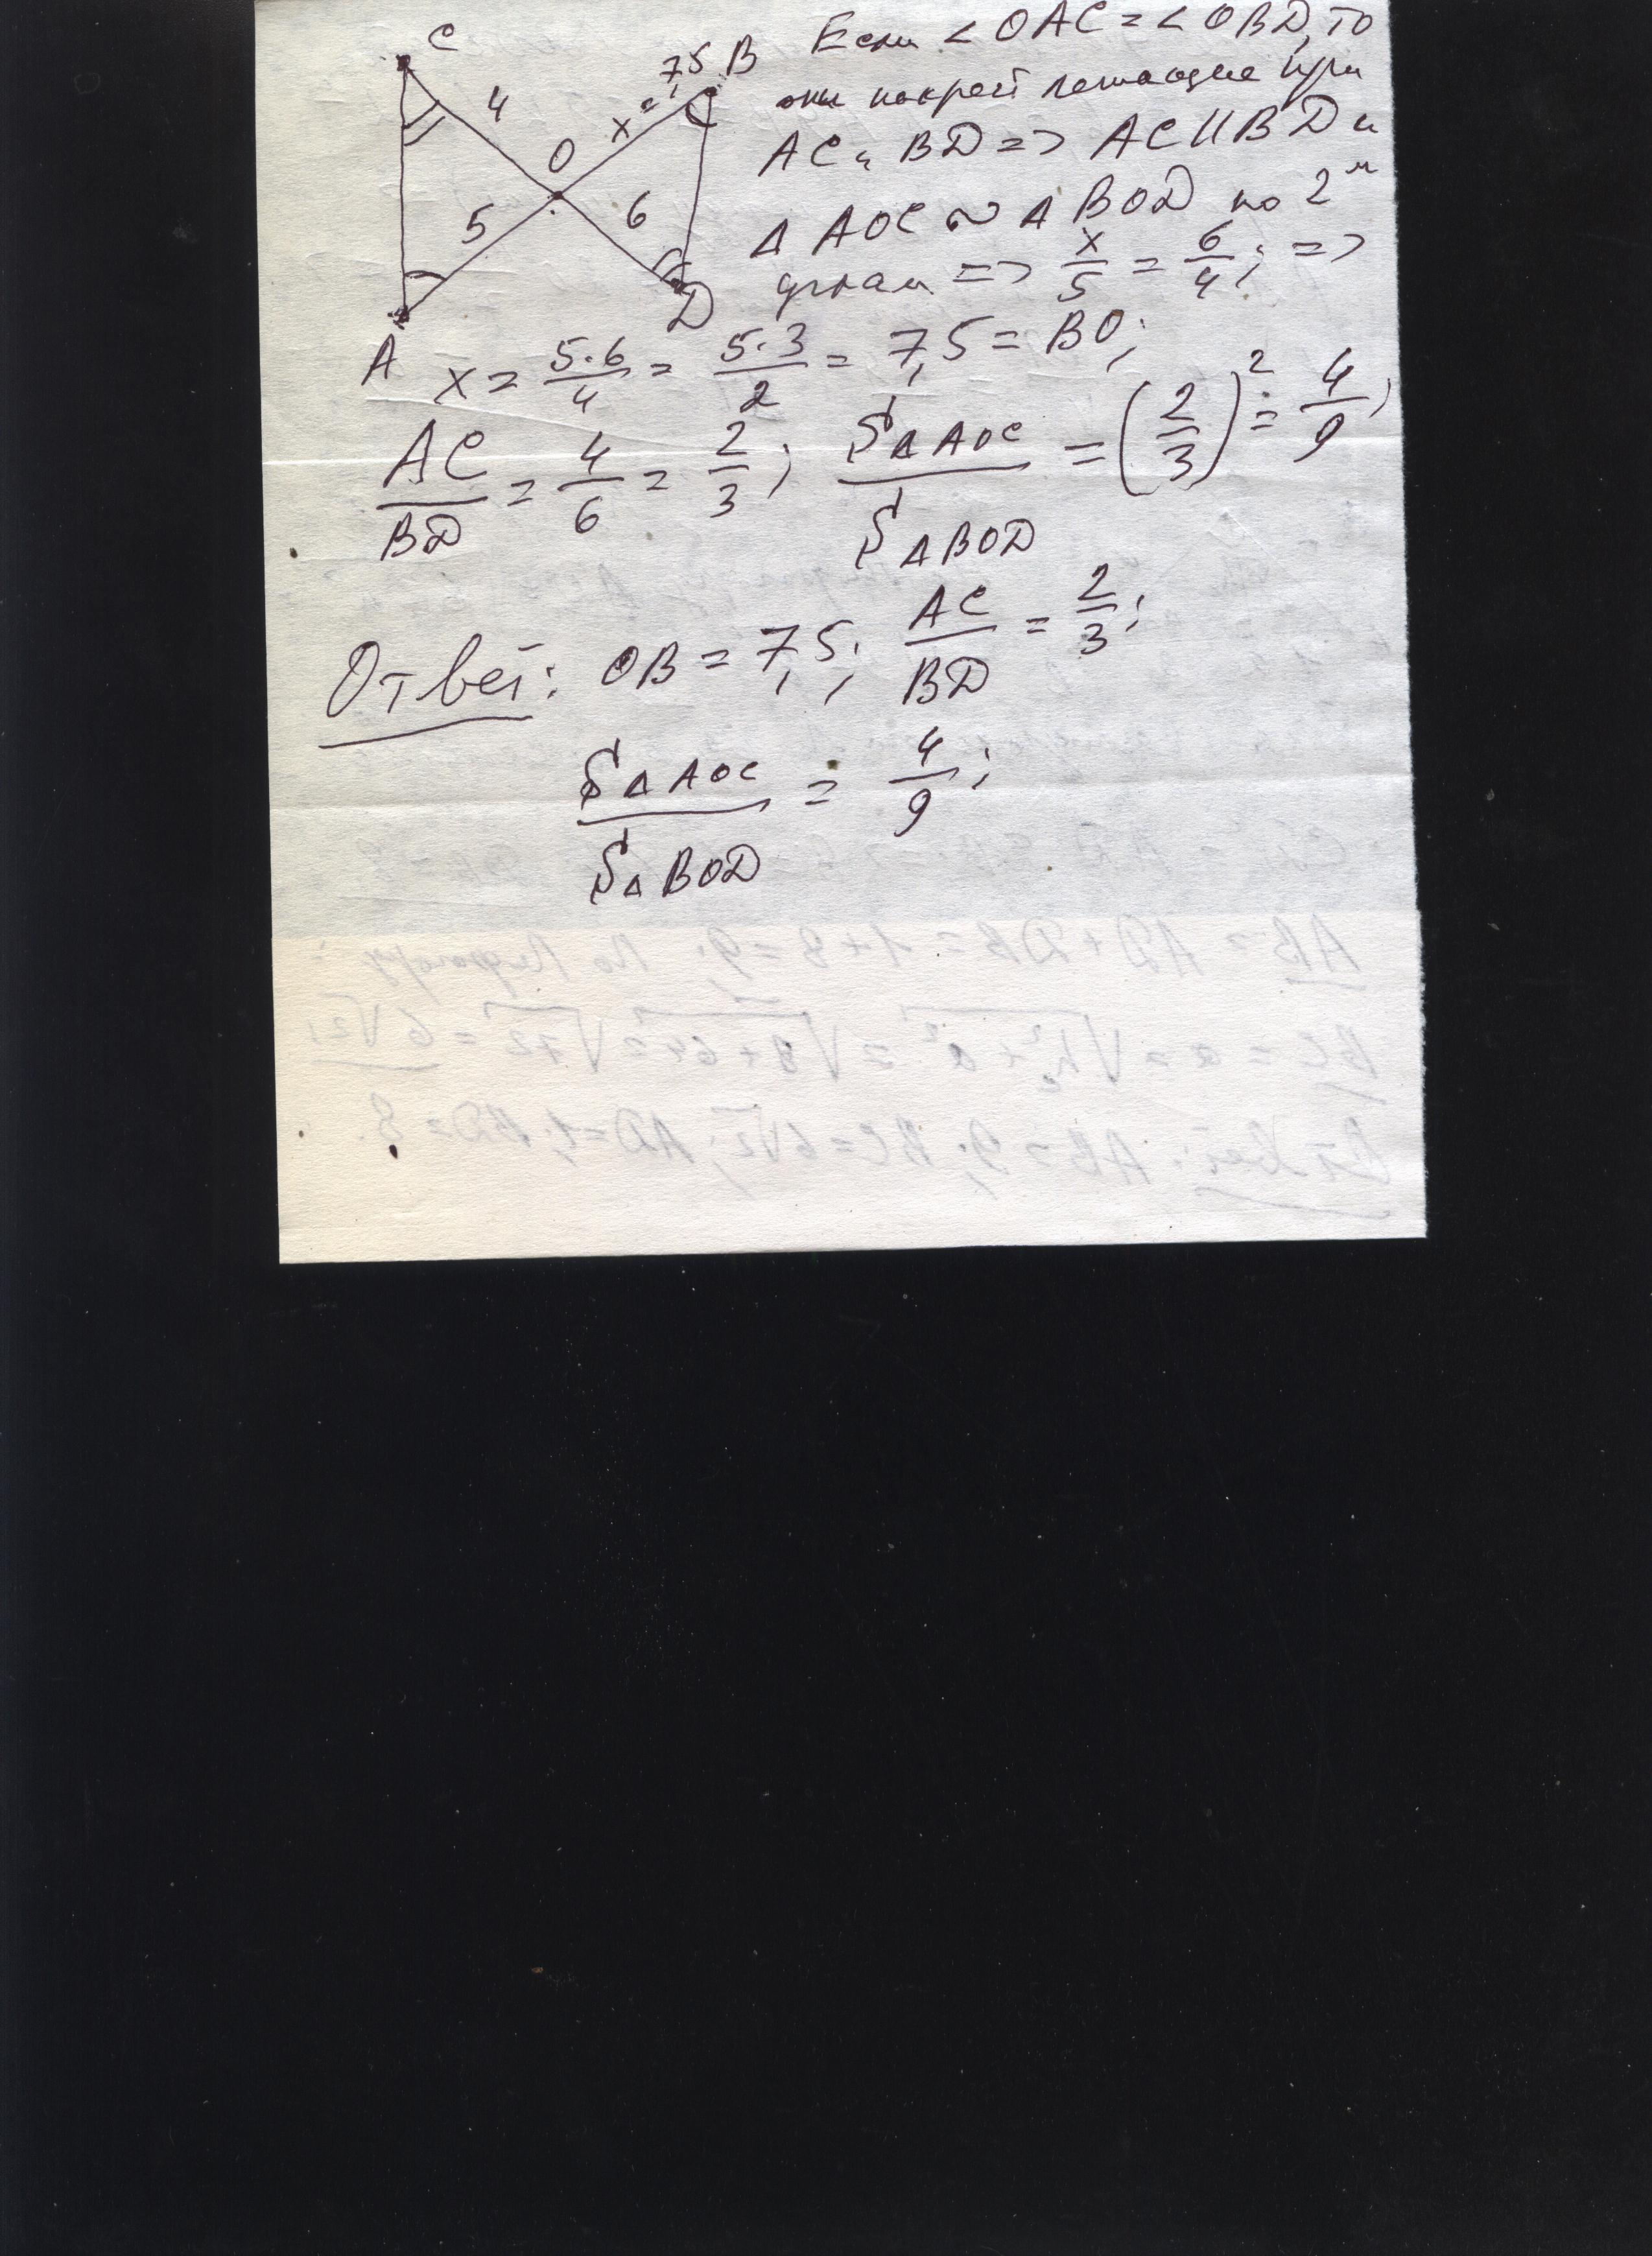 C
4
O
x = 7,5 B
5
6
A
D
Если < OAC = < OBD, то
они накрест лежащие при
AC и BD => AC || BD и
Δ AOC ~ Δ BOD по 2м
углам => x/5 = 6/4; =>
x = 5·6/4 = 5·3/2 = 7,5 = BO;
AC/BD = 4/6 = 2/3; SΔAOC/SΔBOD = (2/3)² = 4/9;
Ответ: OB = 7,5; AC/BD = 2/3;
SΔAOC/SΔBOD = 4/9;
AB = AD + DB = 1 + 8 = 9; По Пифагору:
Ответ: AB = 9; BC = 6√2; AD = 1; BD = 8.